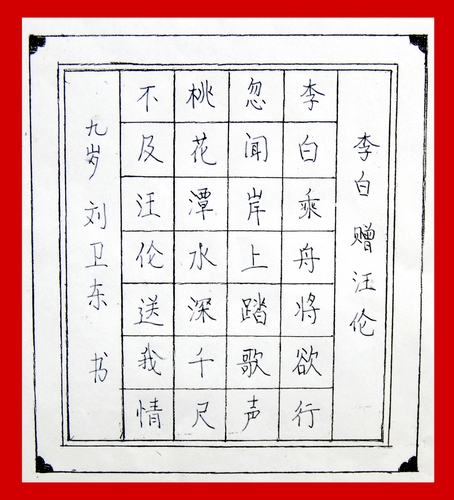 李白 赠汪伦
李白乘舟将欲行
忽闻岸上踏歌声
桃花潭水深千尺
不及汪伦送我情
九岁 刘卫东 书